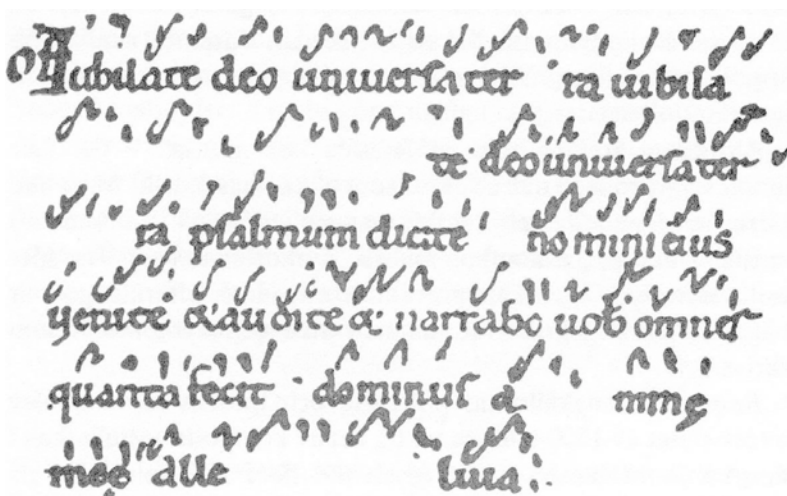 OF Iubilate deo uniuersa ter ra iubila
te deo uniuersa ter
ra psalmum dicite nomini eius
uenite & audite & narrabo uob omnes
quanta fecit dominus a nimę
męę alle luia.